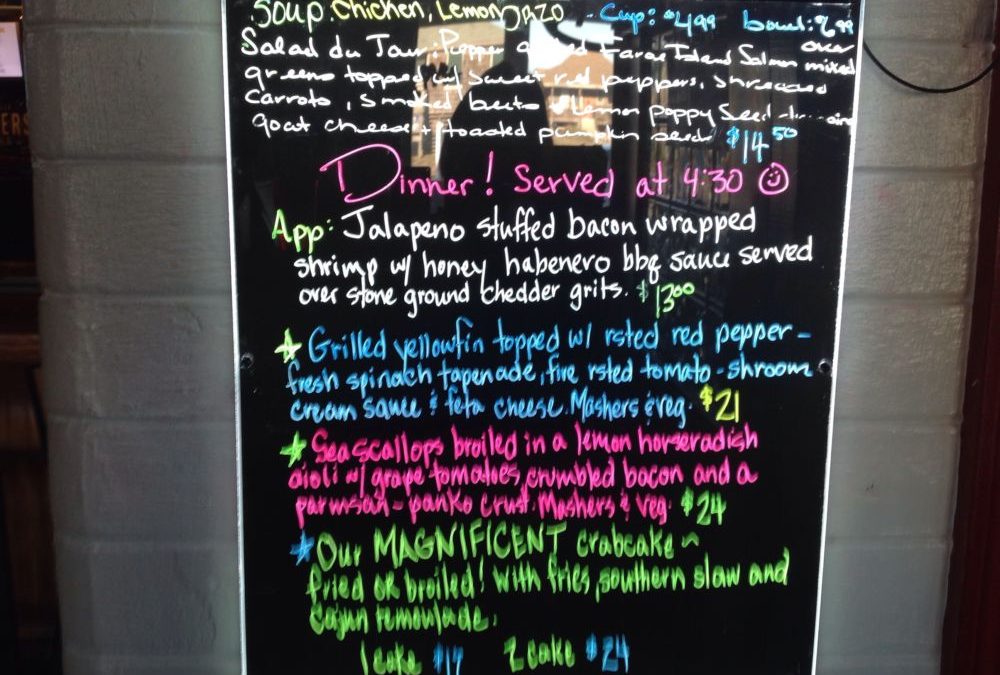 Soup: Chicken, Lemon, Orzo - Cup: $4.99 bowl: 6.99
Salad du Jour: Pepper Faroe Island Salmon over mixed
greens topped w/ sweet red peppers, shredded
Carrots, smoked beets + lemon poppy seed
goat cheese + toasted pumpkin seeds $14.50
Dinner! Served at 4:30
App: Jalapeno stuffed bacon wrapped
shrimp w/ honey habenero bbq sauce served
over stone ground chedder grits. $13.00
Grilled yellowfin topped w/ rsted red pepper -
fresh spinach tapenade, fire rsted tomato - shroom
cream sauce & feta cheese. Mashers & veg. $21
Sea scallops broiled in a lemon horseradish
aioli w/ grape tomatoes, crumbled bacon and a
parmsan - panko crust. Mashers & veg. $24
Our MAGNIFICENT crabcake ~
fried or broiled! with fries, southern slaw and
cajun remoulade.
1 cake $17 2 cake $24